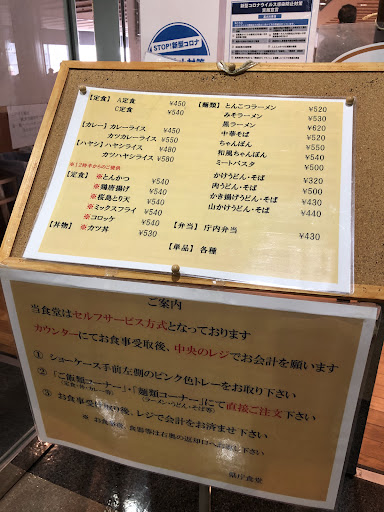 新型コロナウイルス感染防止対策
STOP!新型コロナ
【定食】 A定食 ¥450
C定食 ¥540
【カレー】カレーライス ¥450
カツカレーライス ¥550
【ハヤシ】ハヤシライス ¥480
カツハヤシライス ¥580
【定食】 ※とんかつ ¥540
※鶏唐揚げ ¥540
※桜島とり天 ¥540
※ミックスフライ ¥540
※コロッケ ¥540
【丼物】 ※カツ丼 ¥530
【麺類】とんこつラーメン ¥520
みそラーメン ¥530
黒ラーメン ¥620
中華そば ¥520
ちゃんぽん ¥550
和風ちゃんぽん ¥540
ミートパスタ ¥500
かけうどん・そば ¥320
肉うどん・そば ¥500
かき揚げうどん・そば ¥430
山かけうどん・そば ¥440
【弁当】庁内弁当 ¥430
【単品】各種
ご案内
当食堂はセルフサービス方式となっております
カウンターにてお食事受取後、中央のレジでお会計を願います
① ショーケース手前左側のピンク色トレーをお取り下さい
② 「ご飯類コーナー」・「麺類コーナー」にて直接ご注文下さい
(定食・丼・カレー他) (ラーメン・うどん・そば等)
③ お食事受取後、レジで会計をお済ませ下さい
県庁食堂